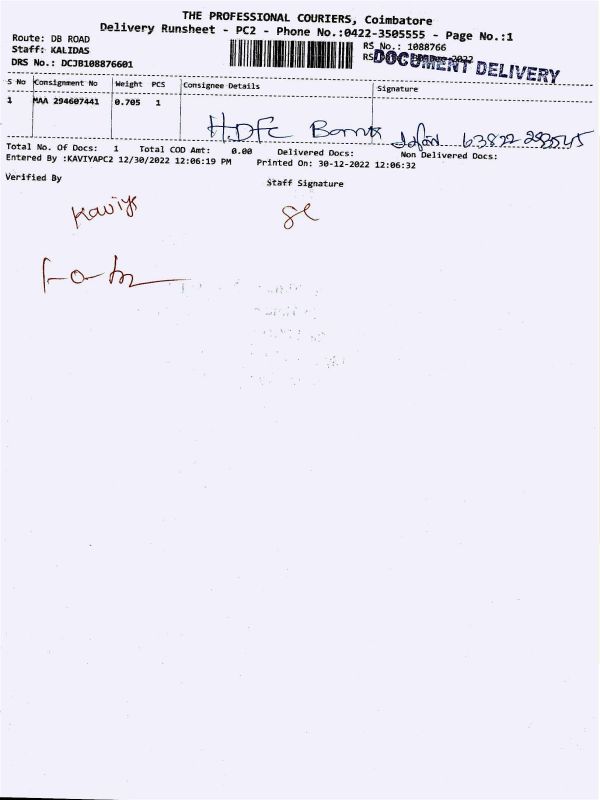 THE PROFESSIONAL COURIERS, Coimbatore
Delivery Runsheet - PC2 - Phone No.:0422-3505555 - Page No.:1
Route: DB ROAD
Staff: KALIDAS
DRS No.: DCJB108876601
RS No.: 1088766
DOCUMENT DELIVERY
S No Consignment No Weight PCS Consignee Details Signature
1 MAA 294607441 0.705 1
HDFC Bank
Total No. Of Docs: 1 Total COD Amt: 0.00 Delivered Docs: Non Delivered Docs:
Entered By :KAVIYAPC2 12/30/2022 12:06:19 PM Printed On: 30-12-2022 12:06:32
Verified By Staff Signature
Kaviya